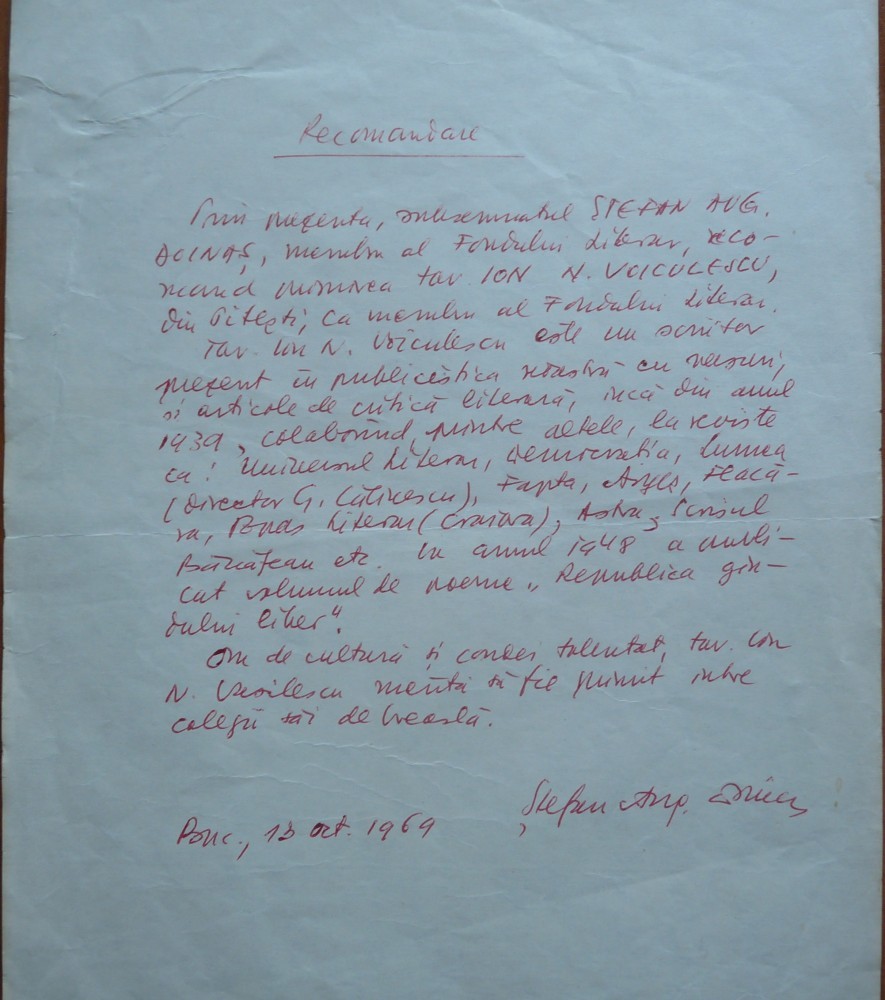 Recomandare
Prin prezenta, subsemnatul ȘTEFAN AUG.
DOINAȘ, membru al Fondului Literar, reco-
mand primirea tov. ION N. VOICULESCU,
din Pitești, ca membru al Fondului Literar.
Tov. Ion N. Voiculescu este un scriitor
prezent în publicistica noastră cu versuri,
și articole de critică literară, încă din anul
1939, colaborînd, printre altele, la reviste
ca: Universul Literar, Democrația, Lumea
(director G. Călinescu), Fapta, Argeș, Flacă-
ra, Ramuri Literar (Craiova), Astra, Scrisul
Bănățean etc. În anul 1948 a publi-
cat volumul de poeme „Republica gîn-
dului liber".
Om de cultură și condei talentat, tov. Ion
N. Vasilescu merită să fie primit între
colegii săi de breaslă.
Buc., 13 oct. 1969 Ștefan Aug. Doinaș